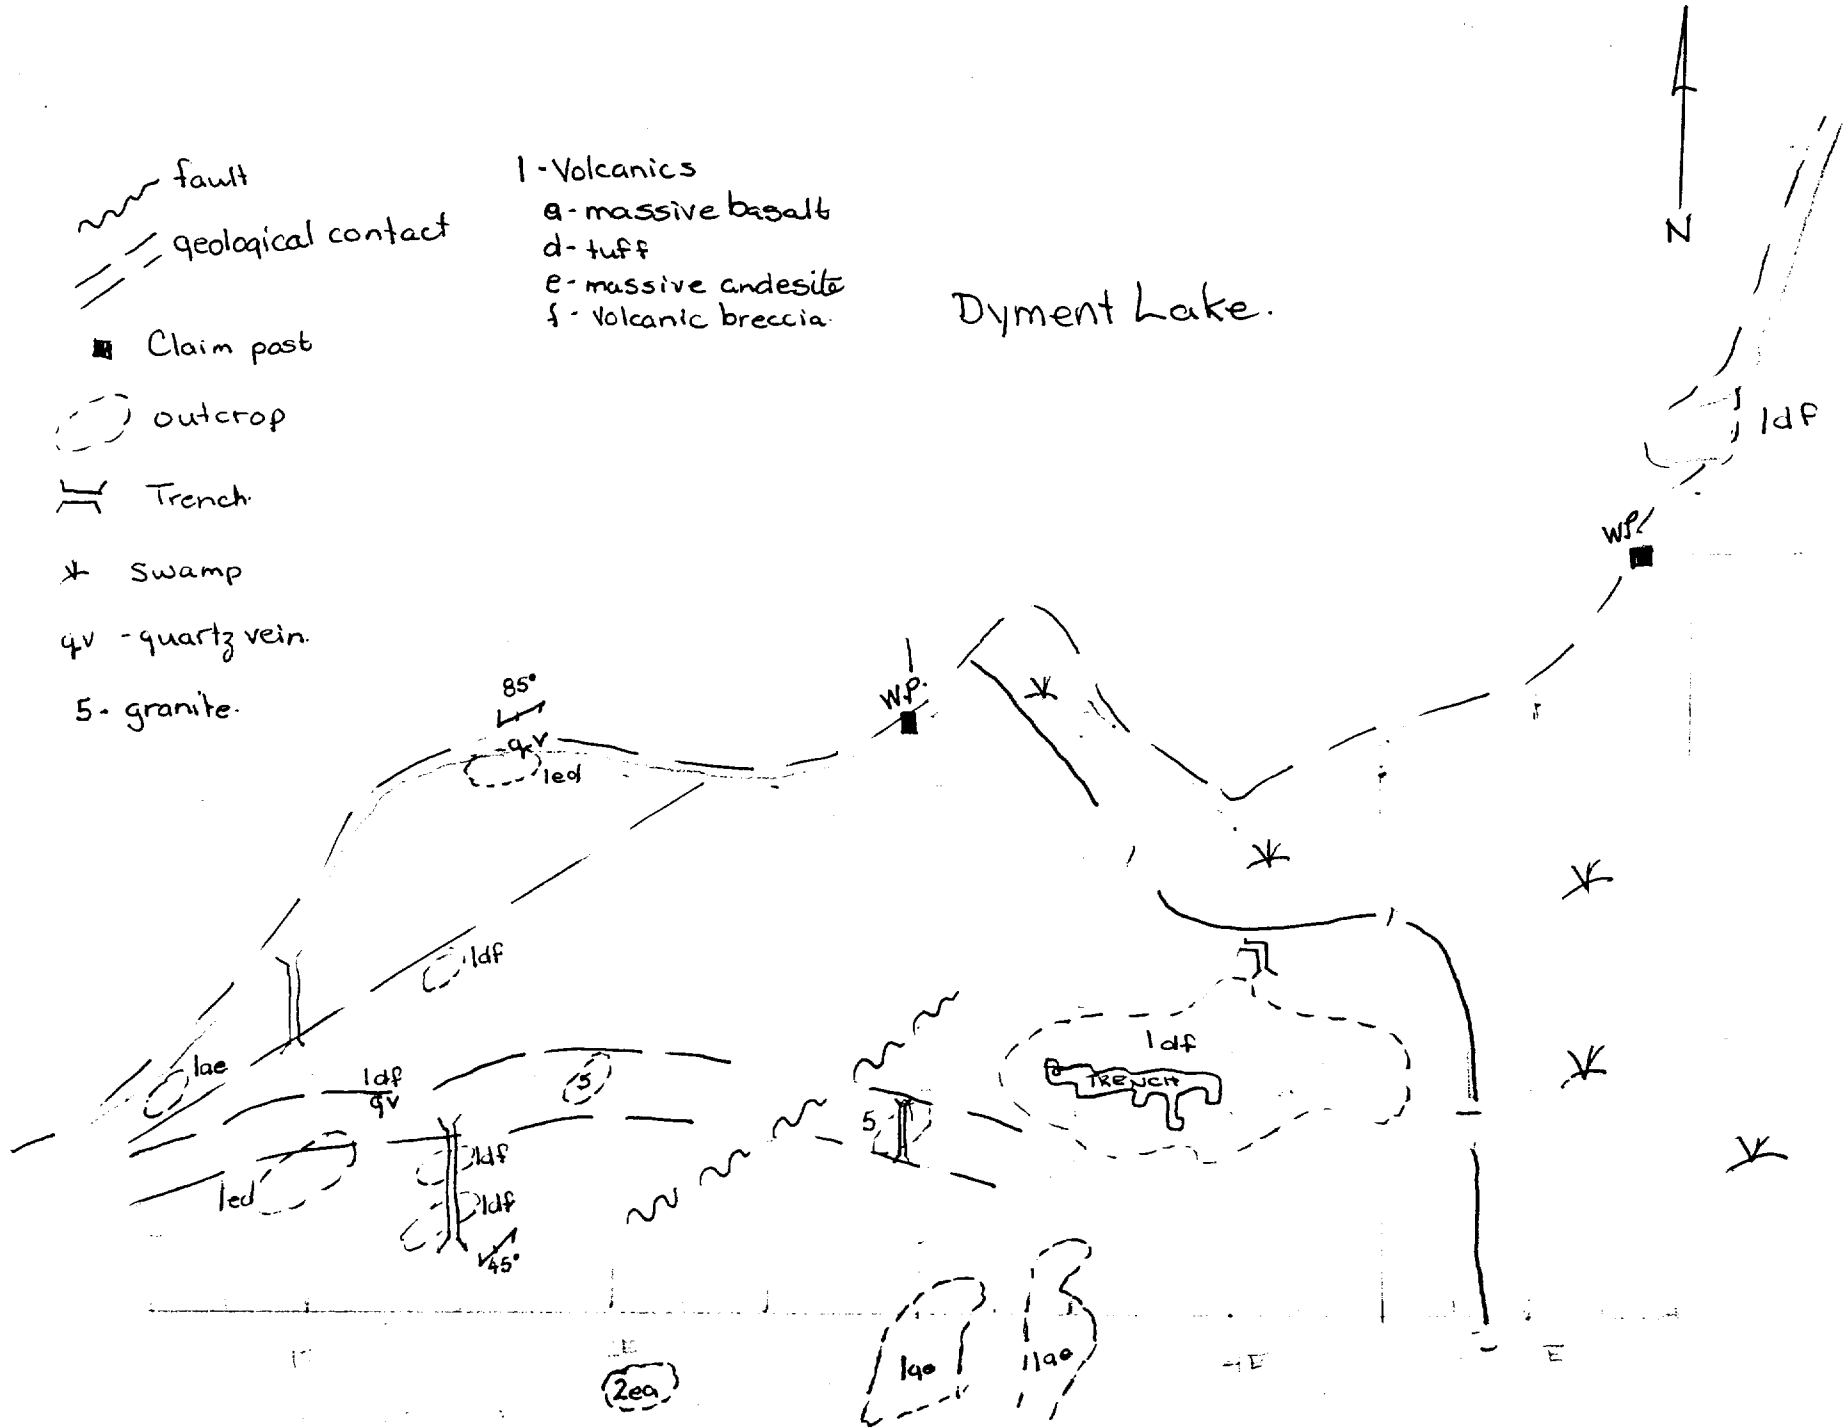 fault
geological contact
Claim post
outcrop
Trench.
swamp
qv - quartz vein.
5 - granite.
1 - Volcanics
a - massive basalt
d - tuff
e - massive andesite
f - Volcanic breccia.
Dyment Lake.
N
1df
W.P.
W.P.
85°
qv
1ed
1df
1ae
1df
qv
5
1df
TRENCH
5
1df
1ed
1df
45°
1ae
1ae
2ea
4E
E